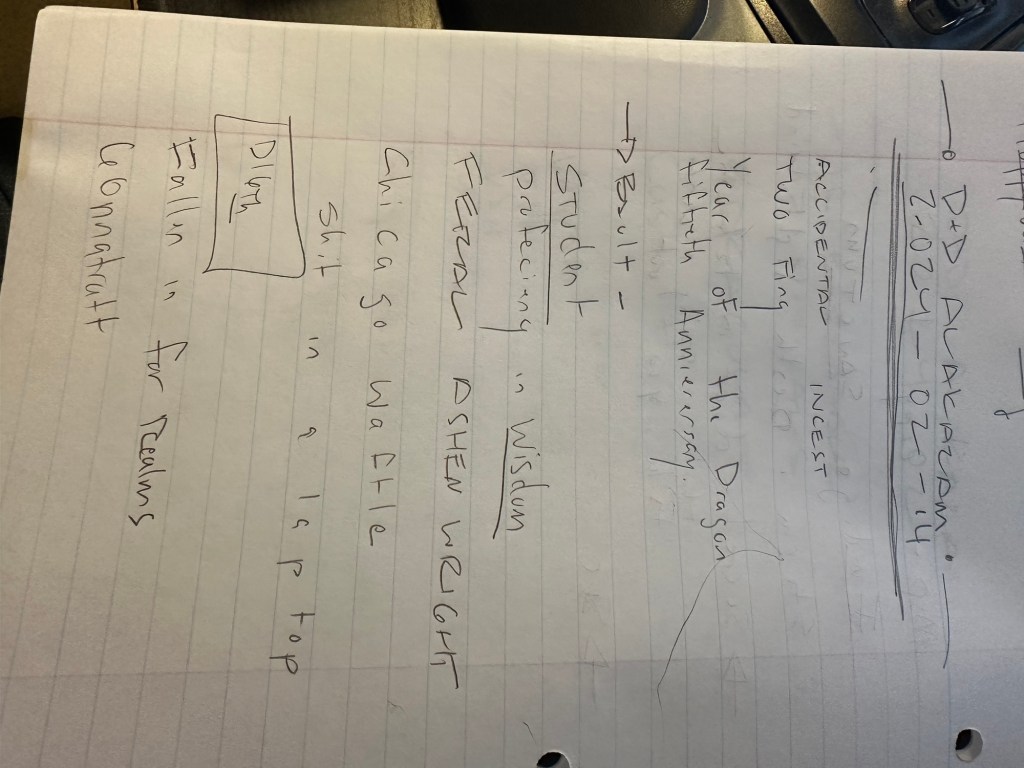 D+D ALAKAZAM.
2024-02-14
ACCIDENTAL INCEST
Two Fing
Year of the Dragon
fiftieth Anniversary.
Built -
Student
profeciny in Wisdom
FERAL ASHEN WRIGHT
Chicago Waffle
Shit in a laptop
Falln in for Realms